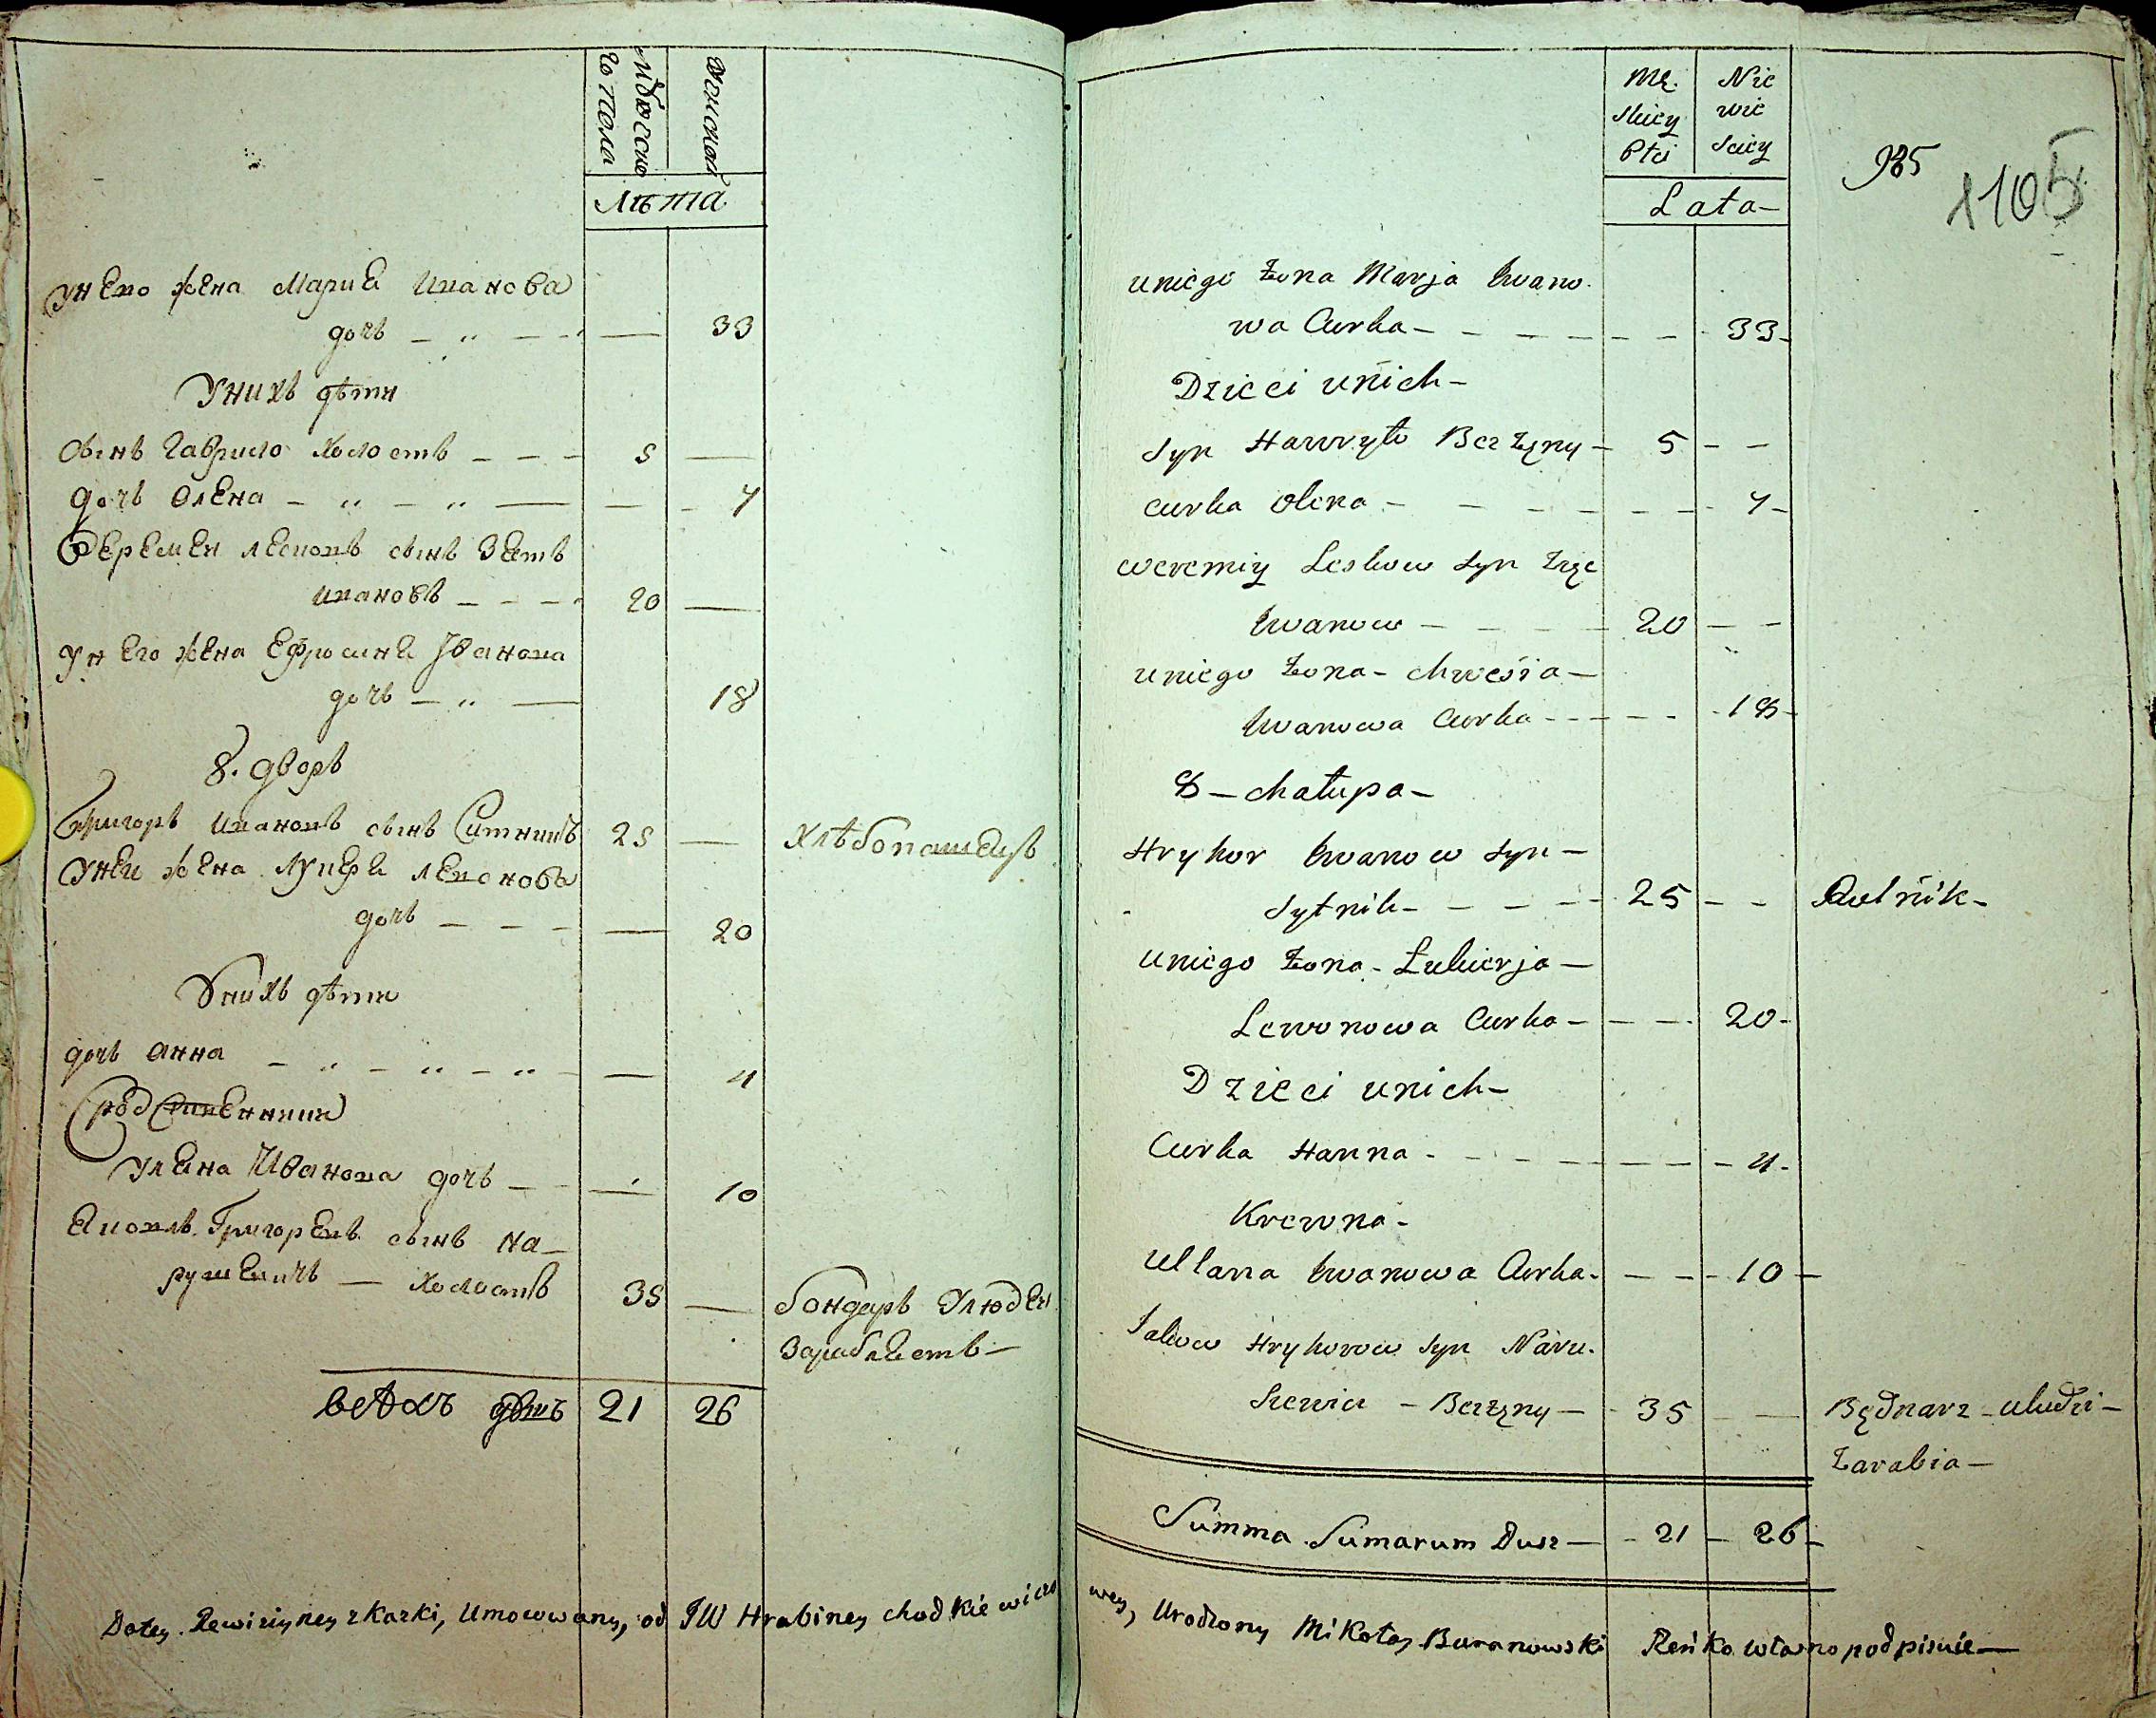 мужеско
го пола
женской
лѣта
Унего жена Мария Иванова
дочь 33
Унихъ дѣти
сынъ Гаврило холостъ 5
дочь Олена 7
Веремей лесковъ сынъ Зять
ивановъ 20
Унего жена Ефросиня Иванова
дочь 18
8. дворъ
Григоръ ивановъ сынъ Ситникъ 25 хлѣбопашецъ
Унеи жена лукеря левонова
дочь 20
Унихъ дѣти
дочь анна 4
Уляна Иванова дочь 10
Яковъ Григоревъ сынъ На-
рушевичъ — холостъ 35 бондарь Улюдей
Зарабляетъ —
всѣхъ душъ 21 26
Mę
skiey
Płci
Nie
wie
sciey
Lata —
935
1105
uniego Żona Marja Iwano-
wa Curka — 33 —
Dzieci unich —
Syn Hawryło Bezżęny — 5 — —
curka Olena — 7 —
weremiy Leskow Syn Zięc
Iwanow — 20 — —
unego Żona — chwesia —
Iwanowa Curka — 18 —
8 — chałupa —
Hryhor Iwanow Syn —
Sytnik — 25 — — Rolnik —
Uniego Żona — Łukierja —
Lewonowa Curka — 20 —
Dzieci unich —
Curka Hanna — 4 —
Krewna —
Ullana Iwanowa Curka — 10 —
Jakow Hryhorow Syn Naru-
szewicz — Bezżęny — 35 — Będnarz — uludzi —
Zarabia —
Summa Sumarum Dusz — 21 — 26 —
Dotey Rewizyiney skazki, Umocowany, od JW Hrabiney chodkiewiczo wey, Urodzony Mikołay Buranowski Renko własno podpisuie —